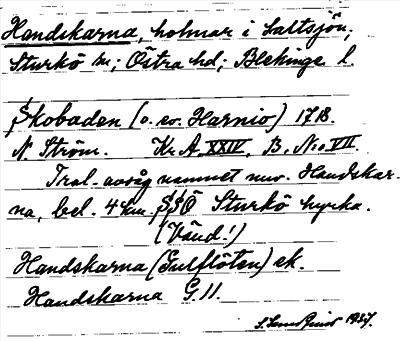 Handskarna, holmar i Saltsjön,
Sturkö sn; Östra hd; Blekinge l.
Skobaden (o. ev. Harnio) 1718.
N. Ström. Kr. A XXIV, B. No. VII.
Trol. avsåg namnet nuv. Handskar-
na, bel. 4 km. SSÖ Sturkö kyrka.
(Vänd!)
Handskarna (Gulflöten) ek.
Handskarna G.11.
1937.